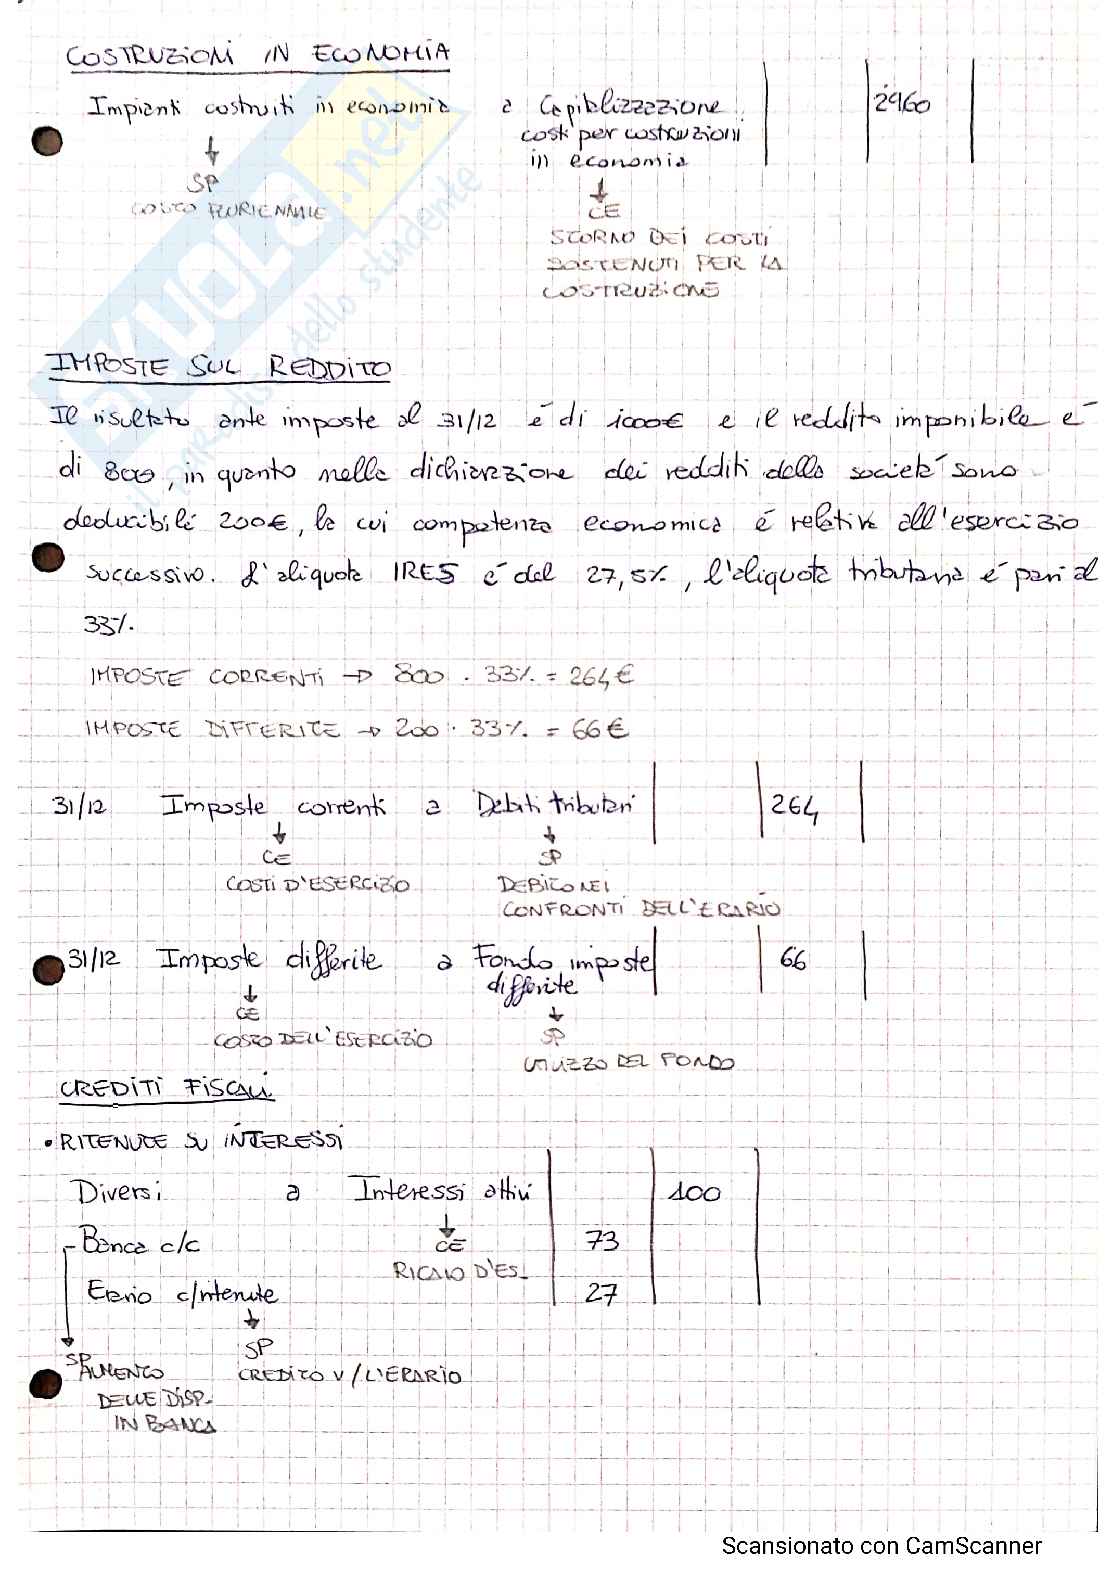 COSTRUZIONI IN ECONOMIA
Impianti costruiti in economia a Capitalizzazione 2960
costi per costruzioni
in economia
SP
COSTO PLURIENNALE
CE
STORNO DEI COSTI
SOSTENUTI PER LA
COSTRUZIONE
IMPOSTE SUL REDDITO
Il risultato ante imposte al 31/12 é di 1000€ e il reddito imponibile é
di 800, in quanto nella dichiarazione dei redditi della societá sono
deducibili 200€, la cui competenza economica é relativa all'esercizio
successivo. L'aliquota IRES é del 27,5%, l'aliquota tributaria é pari al
33%.
IMPOSTE CORRENTI → 800 . 33% = 264€
IMPOSTE DIFFERITE → 200 . 33% = 66€
31/12 Imposte correnti a Debiti tributari 264
CE SP
COSTI D'ESERCIZIO DEBITO NEI
CONFRONTI DELL'ERARIO
31/12 Imposte differite a Fondo imposte 66
differite
CE
COSTO DELL'ESERCIZIO SP
UTILIZZO DEL FONDO
CREDITI FISCALI
• RITENUTE SU INTERESSI
Diversi a Interessi attivi 100
- Banca c/c CE 73
RICAVO D'ES.
Erario c/ritenute 27
SP SP
AUMENTO CREDITO V/L'ERARIO
DELLE DISP.
IN BANCA
SKUOLA.net
il paradiso dello studente
Scansionato con CamScanner